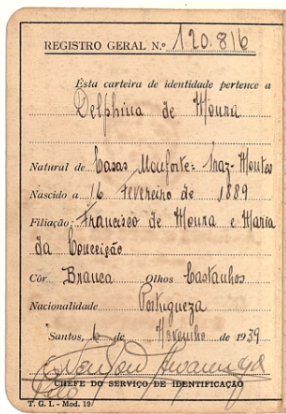 REGISTRO GERAL N.º 120.816
Esta carteira de identidade pertence a
Delphina de Moura
Natural de Casas Monforte: Traz-Montes
Nascido a 16 Fevereiro de 1889
Filiação Francisco de Moura e Maria
da Conceição
Côr Branca Olhos Castanhos
Nacionalidade
Portugueza
Santos, 6 de Novembro de 1939
CHEFE DO SERVIÇO DE IDENTIFICAÇÃO
T. G. I. - Mod. 19